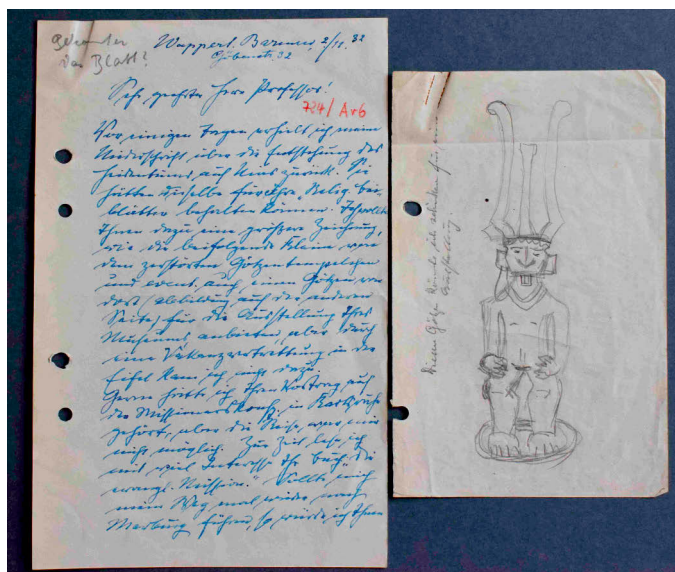 Wuppert. Barmen, 2/11. 32
Sehr geehrter Herr Professor!
724/ Ar6
Vor einigen Tagen erhielt ich meine
Niederschrift über die Entstehung des
Heidentums auf Nias zurück. Sie
hätten dieselbe für Ihre „Relig. bei-
blätter behalten können. Ich wollte
Ihnen dazu eine größere Zeichnung,
wie die beifolgende kleine von
dem zerstörten Götzentempelchen
und event. auch einen Götzen von
dort (Abbildung auf der anderen
Seite) für die Ausstellung Ihres
Museums anbieten, aber durch
eine Vakanzvertretung in der
Eifel kam ich nicht dazu.
Gerne hätte ich Ihren Vortrag auf
der Missionskonf. in Karlsruhe
gehört, aber die Reise war mir
nicht möglich. Zur Zeit lese ich
mit viel Interesse Ihr Buch „Die
evangl. Mission." Sollte mich
mein Weg mal wieder nach
Marburg führen, so würde ich Ihnen
Diesen Götzen könnte ich schicken für eine
Ausstellung.